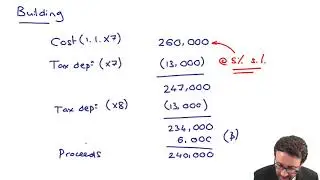 Building
Cost (1.1.X7) 260,000 @ 5% s.l.
Tax depn (X7) (13,000)
247,000
Tax depn (X8) (13,000)
234,000
6,000 (β)
Proceeds 240,000